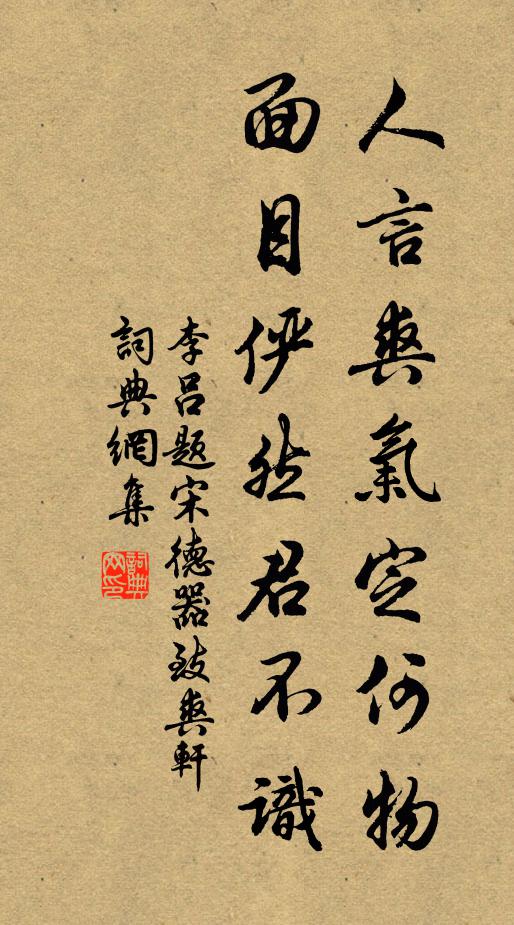 人言爽氣定何物
面目儼然君不識
李呂題宋德器致爽軒
詞典網集
詞典網印